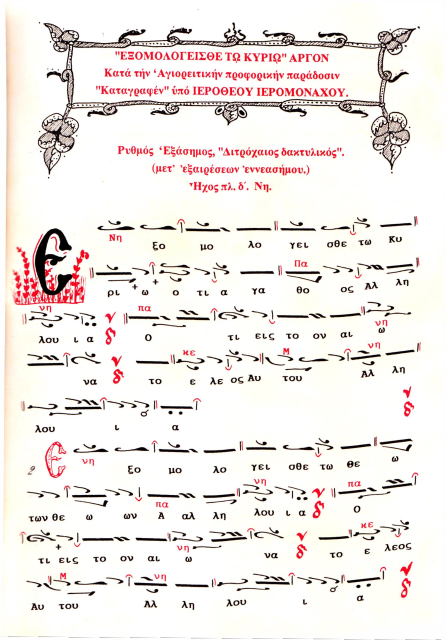 "ΕΞΟΜΟΛΟΓΕΙΣΘΕ ΤΩ ΚΥΡΙΩ" ΑΡΓΟΝ
Κατά τήν Ἁγιορειτικήν προφορικήν παράδοσιν
"Καταγραφέν" ὑπό ΙΕΡΟΘΕΟΥ ΙΕΡΟΜΟΝΑΧΟΥ.
Ρυθμός Ἑξάσημος, "Διτρόχαιος δακτυλικός".
(μετ' ἐξαιρέσεων ἐννεασήμου.)
Ἦχος πλ. δ΄. Νη.
Νη
Ε ξο μο λο γει σθε τω Κυ
Πα
ρι ω ο τι α γα θο ος Αλ λη
νη πα νη
λου ι α Ο τι εις το ον αι ω
κε Μ νη
να το ε λε ος Αυ του Αλ λη
λου ι α
2 Ε νη
ξο μο λο γει σθε τω θε ω
πα νη πα
των θε ω ων Α αλ λη λου ι α Ο
νη κε
τι εις το ον αι ω να το ε λεος
Μ νη
Αυ του Αλ λη λου ι α